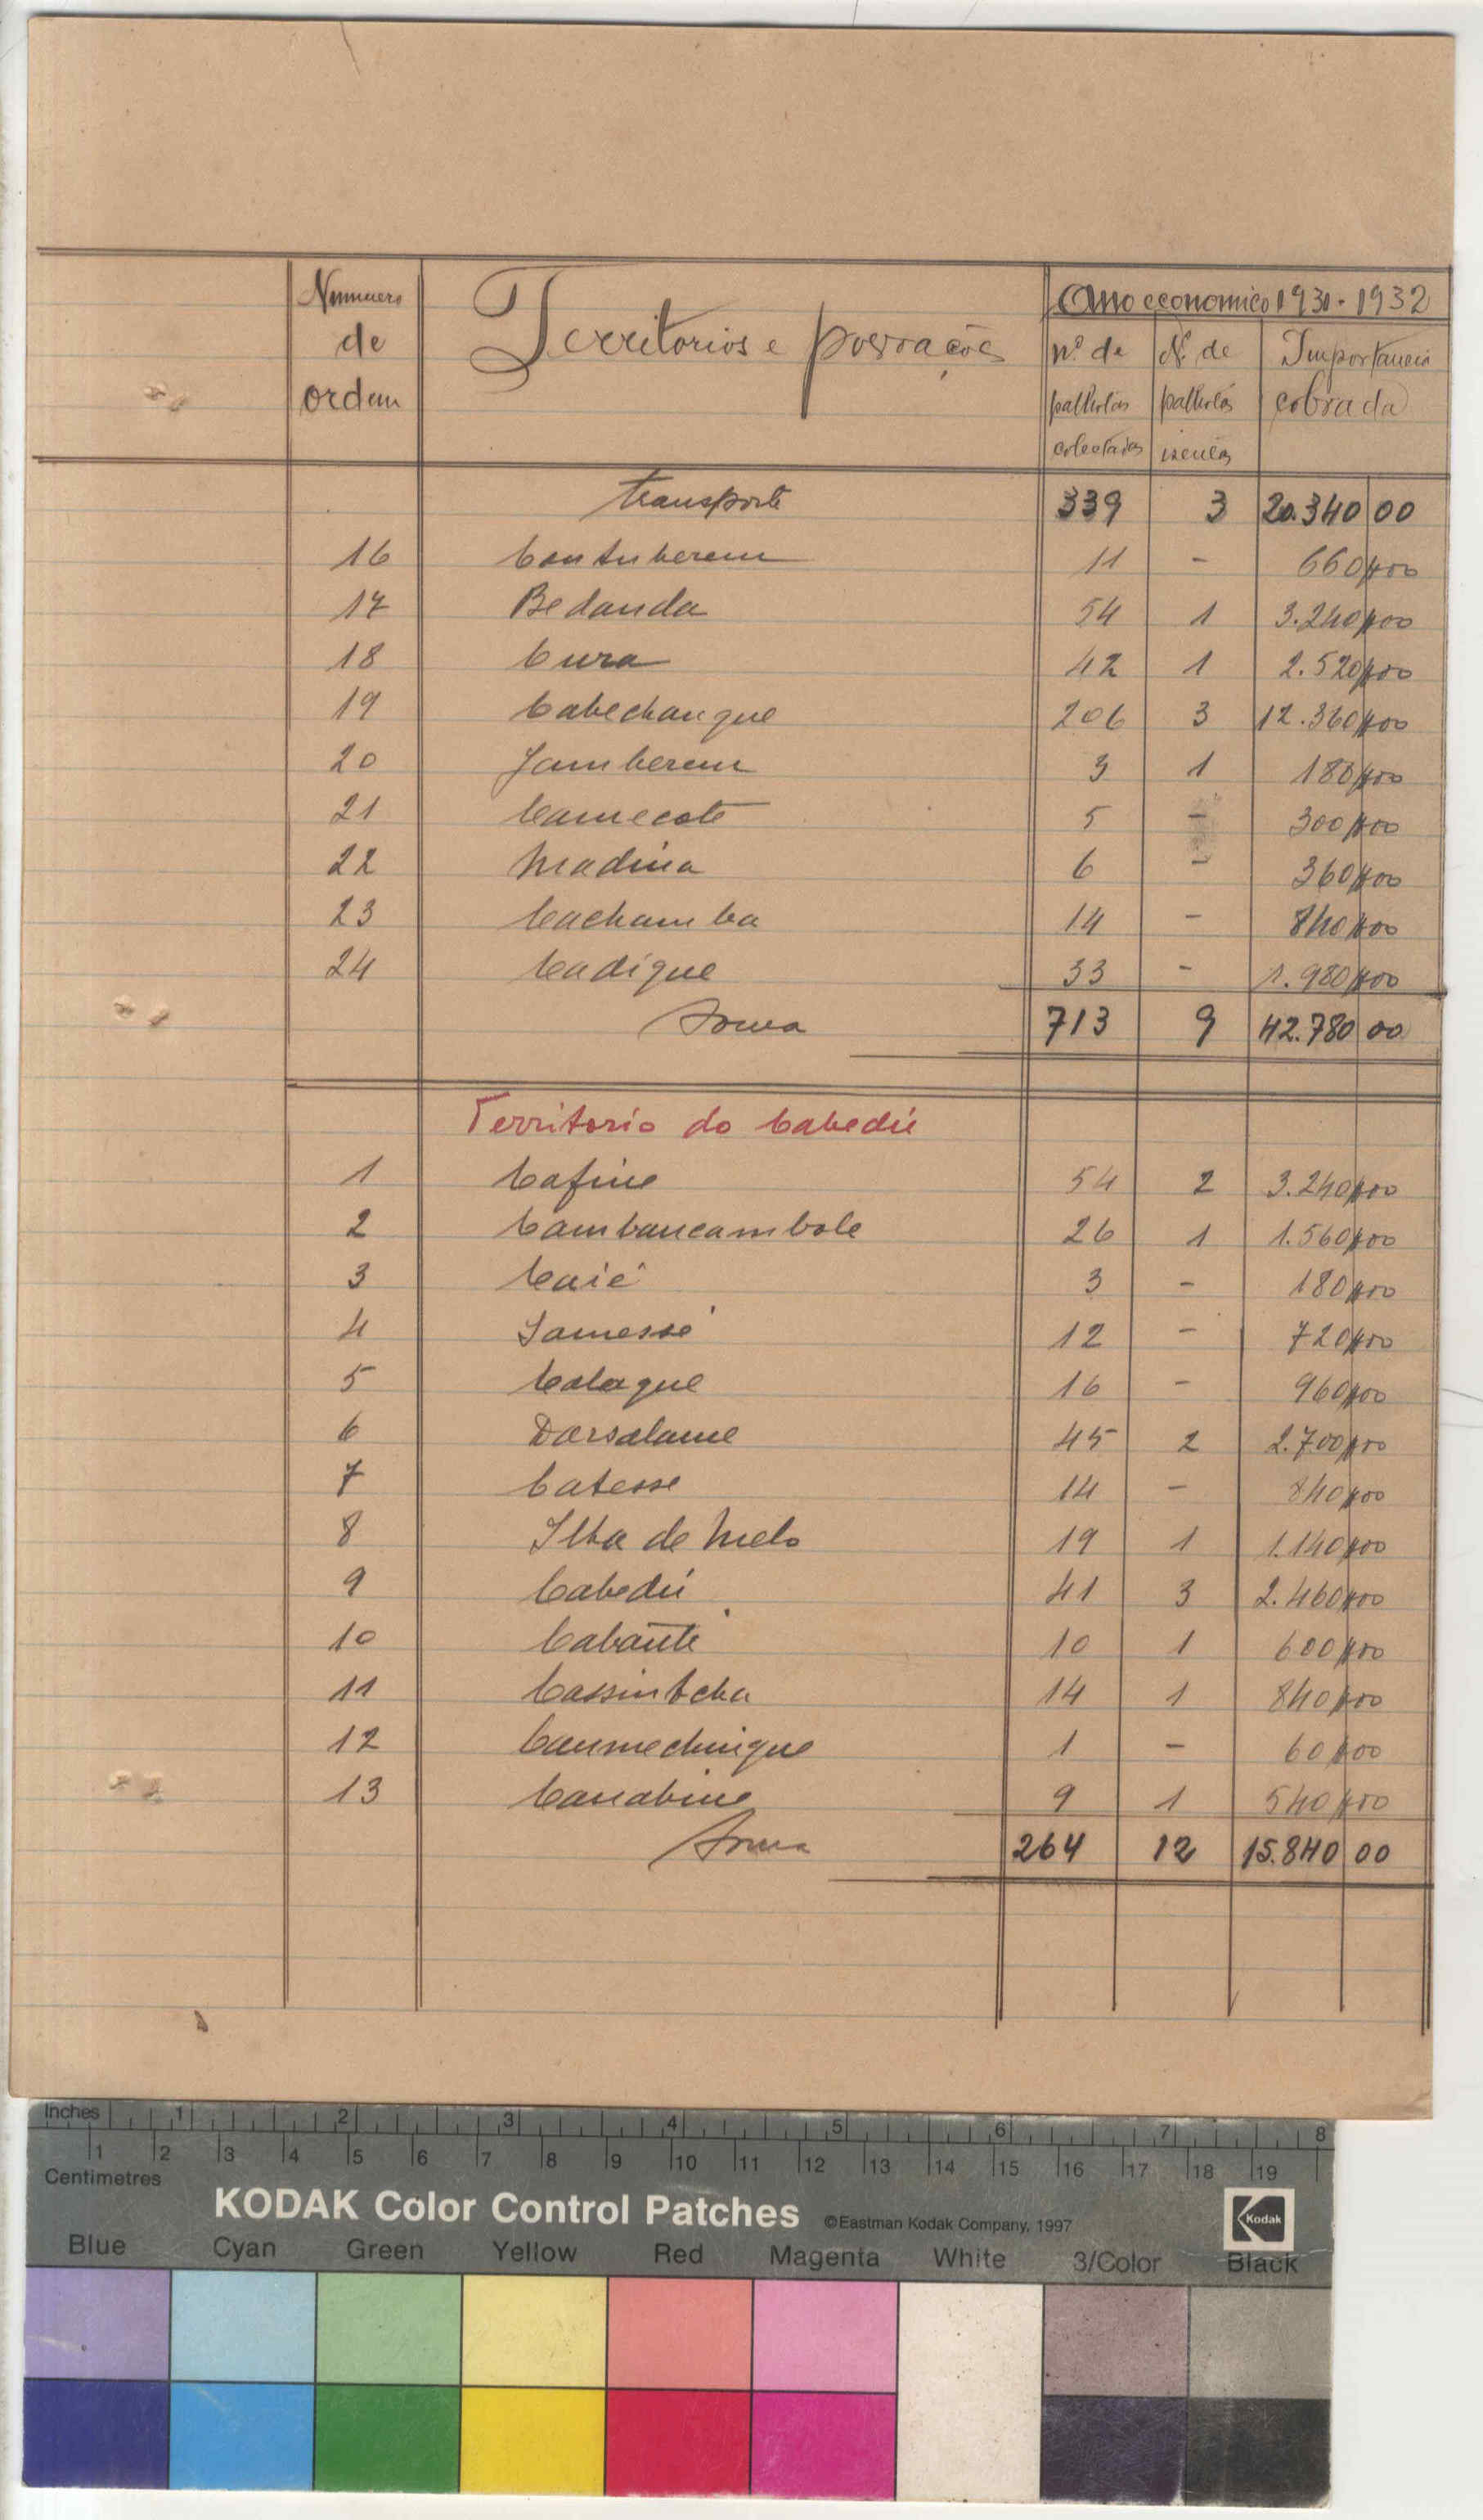 Numuero de ordem
Territorios e povoações
Ano economico 1931-1932
nº de palhotas colectadas
Nº de palhotas isentas
Importancia cobrada
Transporte 339 3 20.340 00
16 Cantuberem 11 - 660$00
17 Bedanda 54 1 3.240$00
18 Cura 42 1 2.520$00
19 Cabechanque 206 3 12.360$00
20 Jamberem 3 1 180$00
21 Camecote 5 - 300$00
22 Madina 6 - 360$00
23 Cachamba 14 - 840$00
24 Cadique 33 - 1.980$00
Soma 713 9 42.780 00
Territorio do Cabedú
1 Cafine 54 2 3.240$00
2 Cambancambole 26 1 1.560$00
3 Caié 3 - 180$00
4 Jamessé 12 - 720$00
5 Calaque 16 - 960$00
6 Darsalame 45 2 2.700$00
7 Catesse 14 - 840$00
8 Ilha de Melo 19 1 1.140$00
9 Cabedú 41 3 2.460$00
10 Cabanté 10 1 600$00
11 Cassintcha 14 1 840$00
12 Caumechuique 1 - 60$00
13 Canabine 9 1 540$00
Soma 264 12 15.840 00
Inches 1 2 3 4 5 6 7 8
1 2 3 4 5 6 7 8 9 10 11 12 13 14 15 16 17 18 19
Centimetres
KODAK Color Control Patches ©Eastman Kodak Company, 1997 Kodak
Blue Cyan Green Yellow Red Magenta White 3/Color Black